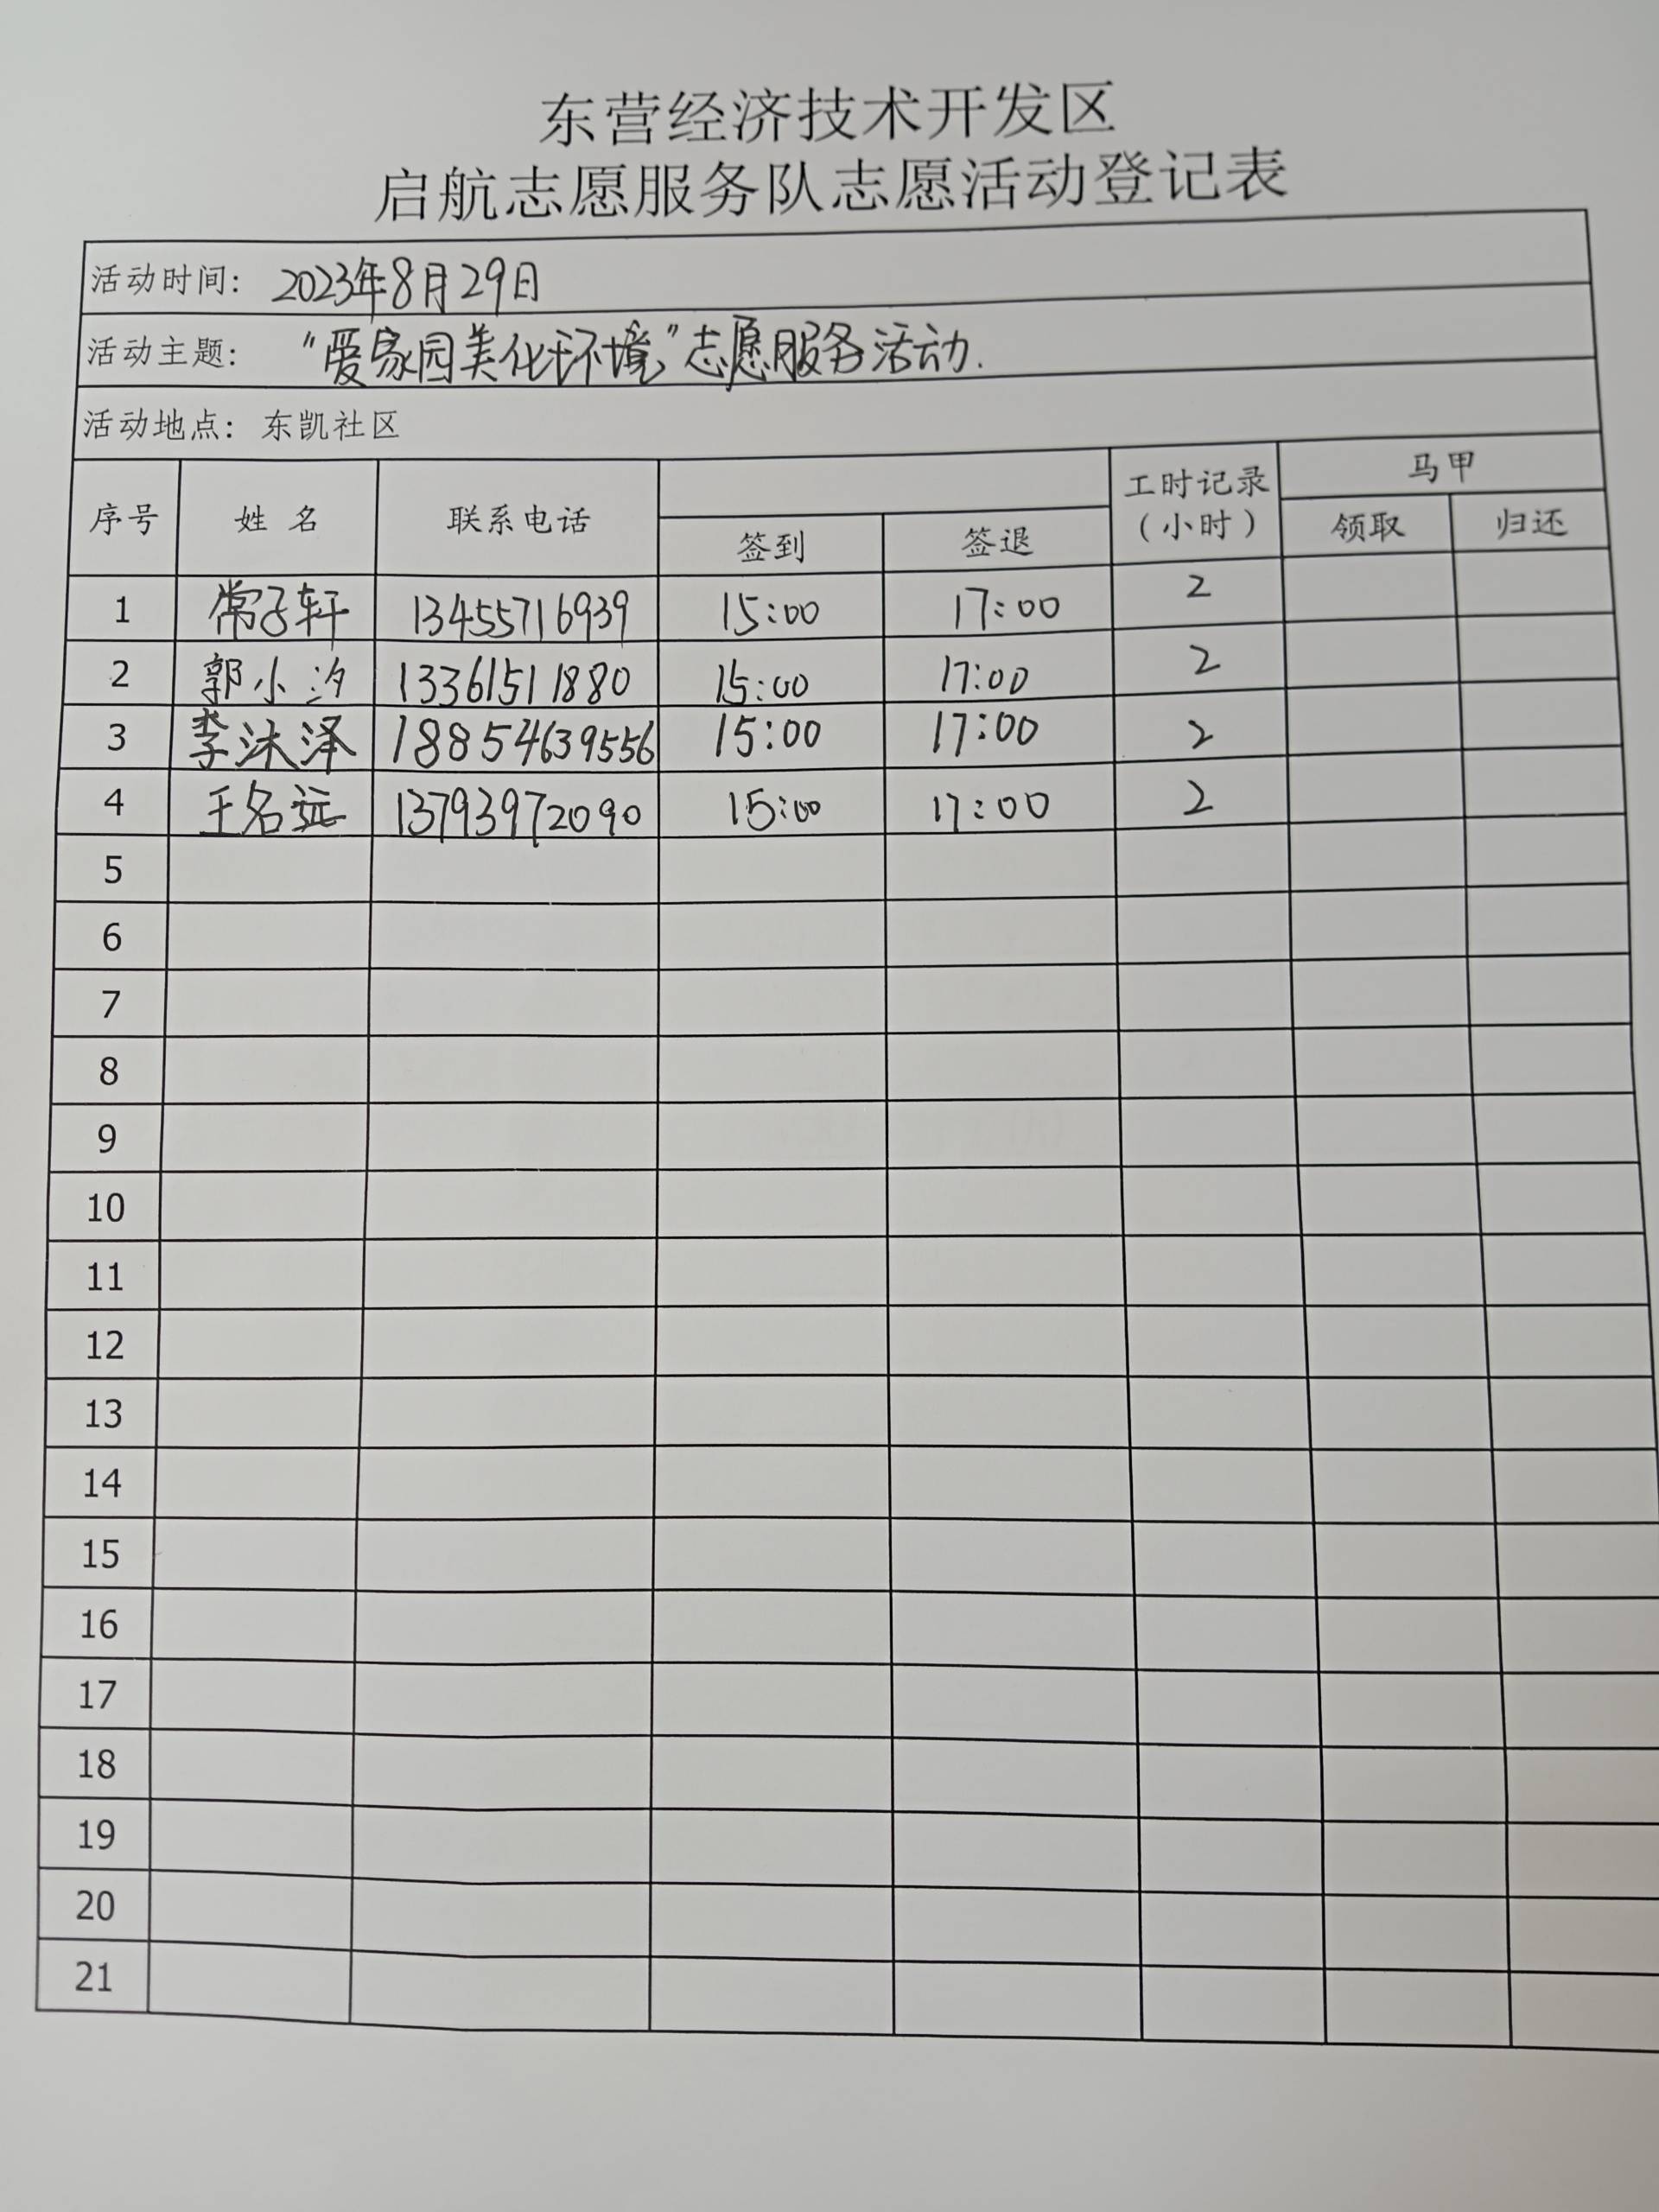 东营经济技术开发区
启航志愿服务队志愿活动登记表
活动时间: 2023年8月29日
活动主题: “爱家园美化环境”志愿服务活动.
活动地点: 东凯社区
序号 姓名 联系电话 签到 签退 工时记录(小时) 马甲 领取 归还
1 常子轩 13455716939 15:00 17:00 2
2 郭小汐 13361511880 15:00 17:00 2
3 李沐泽 18854639556 15:00 17:00 2
4 王名远 13793972090 15:00 17:00 2
5
6
7
8
9
10
11
12
13
14
15
16
17
18
19
20
21